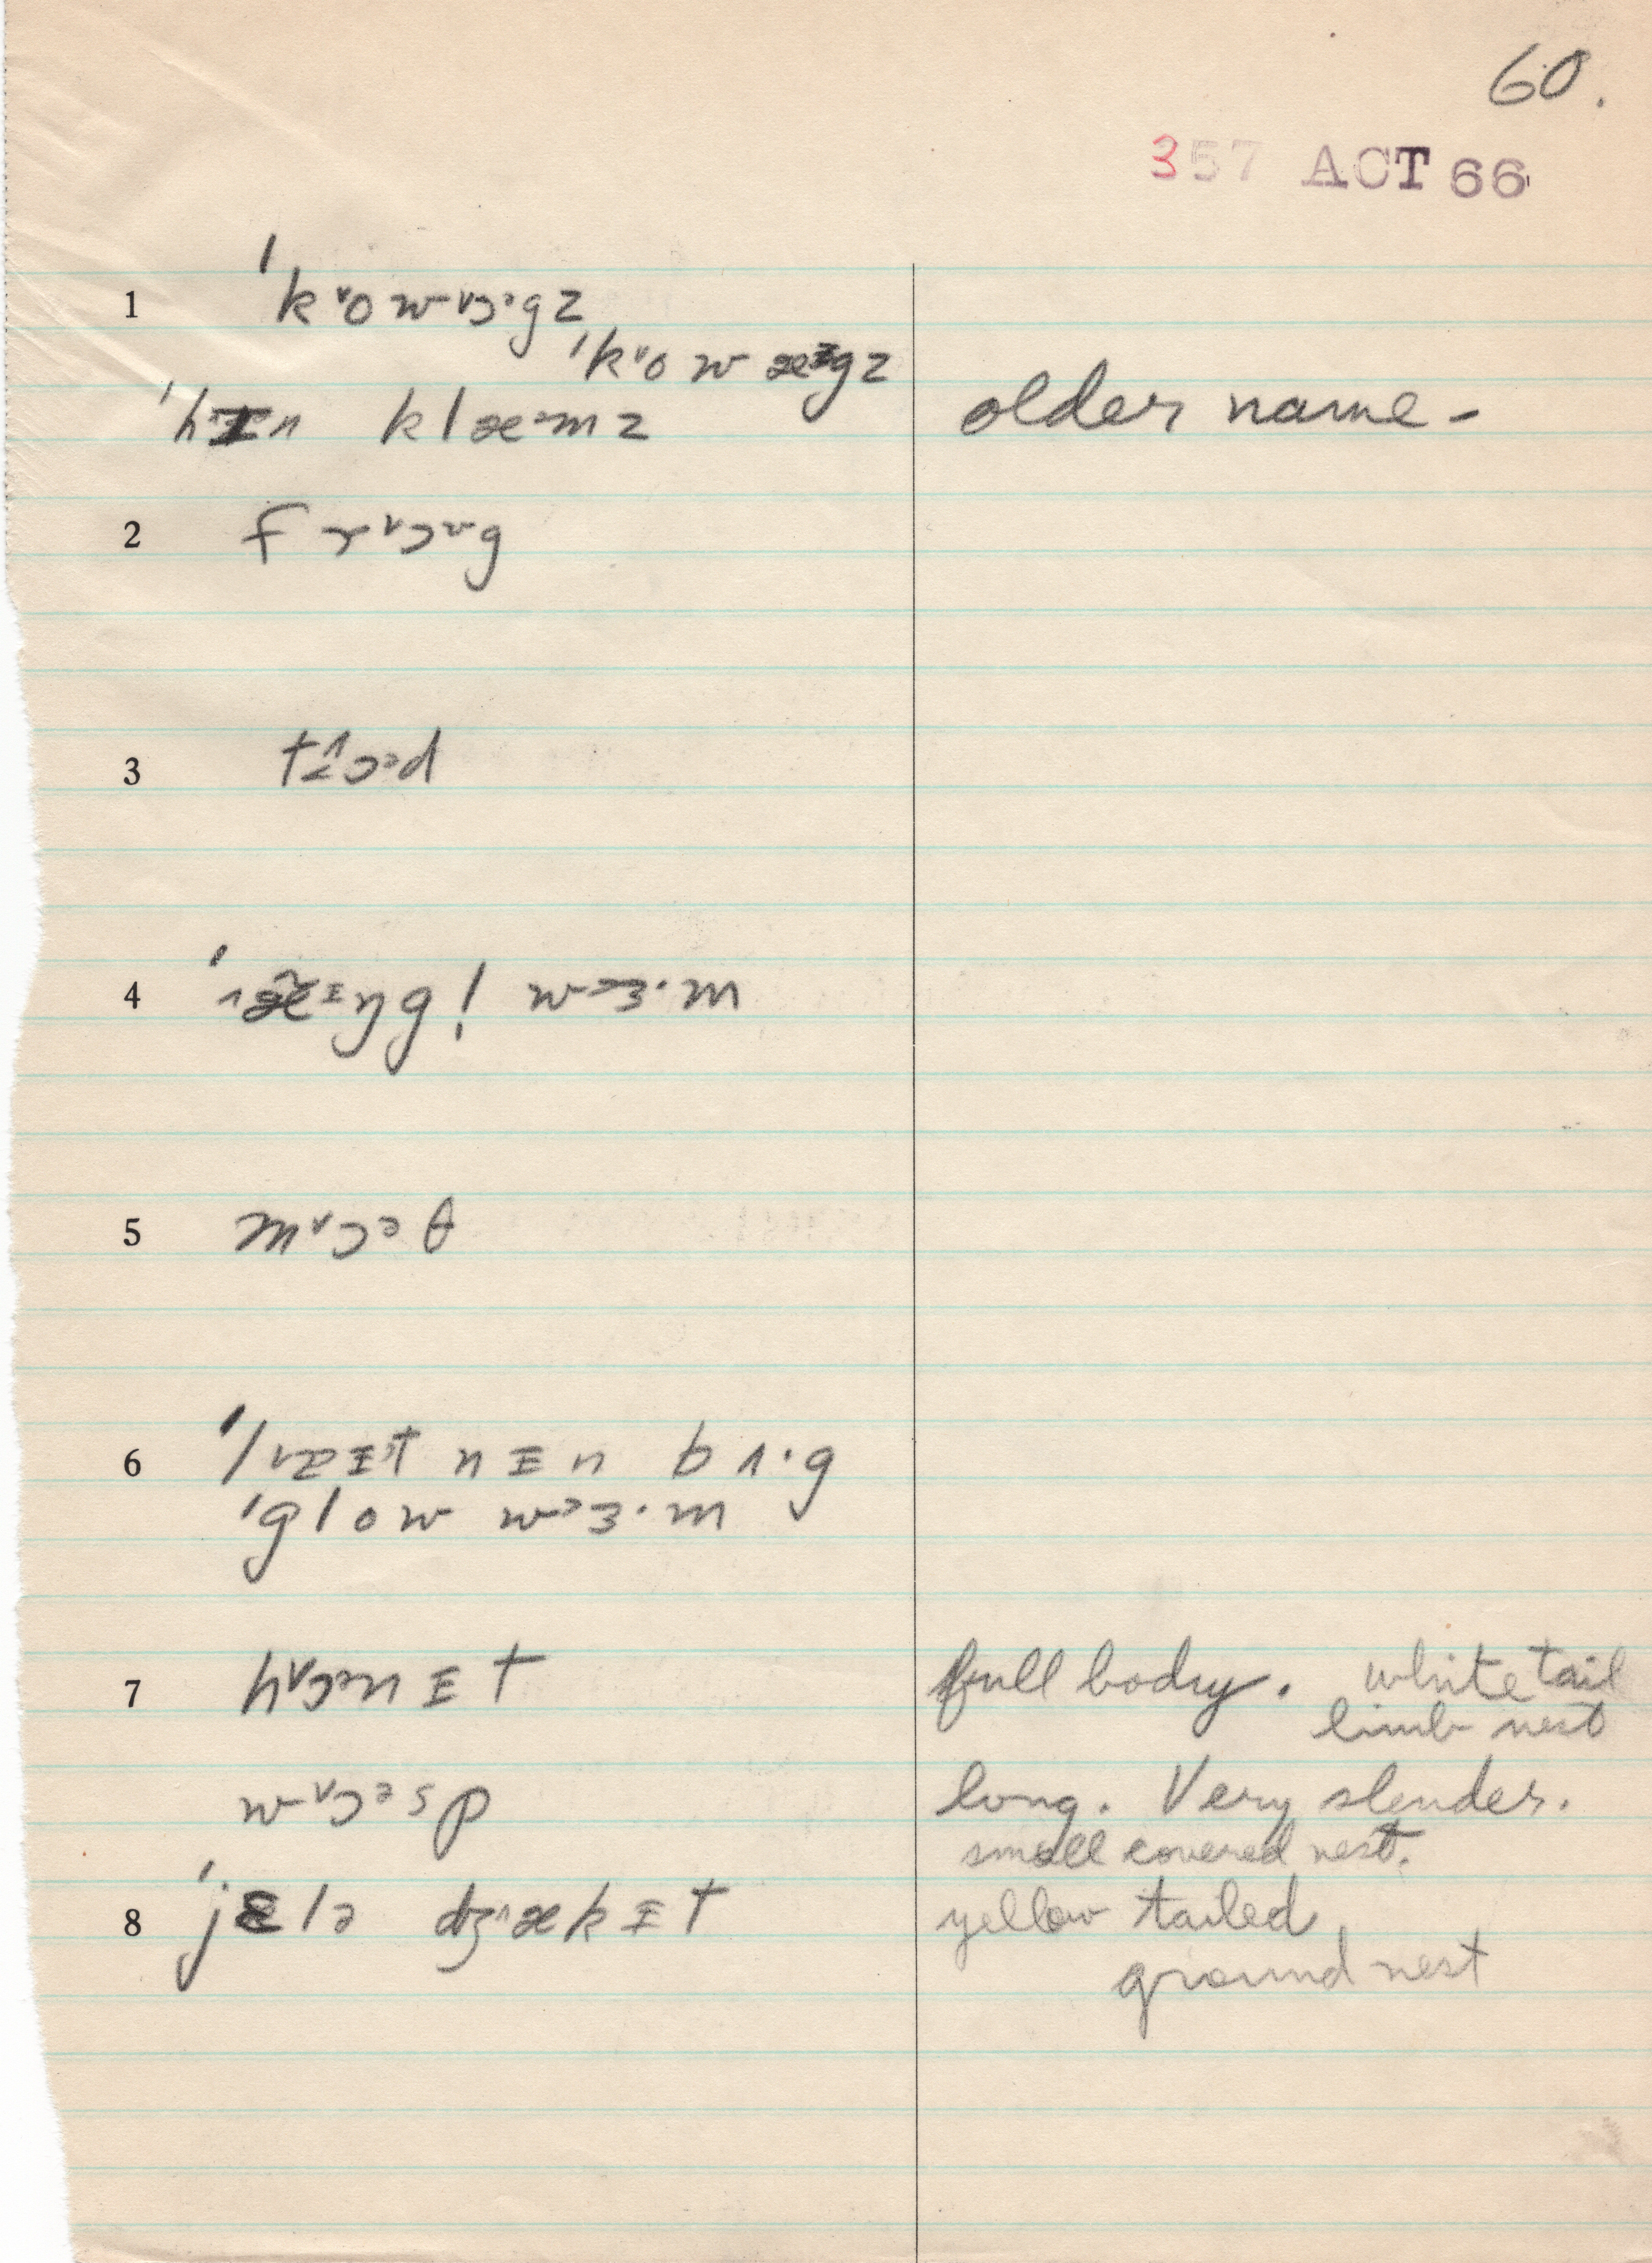 60.
357 ACT 66
1 ˈk˅ow˅ɔ·gz
ˈk˅ow æᶦgz
ˈhɪn klæ˃mz older name -
2 fr˅ɔ˅g
3 t˄ɔᵊd
4 ˈræᶦŋgl̩ w˃ɜ·m
5 m˅ɔᵊθ
6 ˈl˅æɪtnɪn bʌ·g
ˈglow w˃ɜ·m
7 h˅ɔᵊnɪt full body. white tail
limb nest
w˅ɔᵊsp long. Very slender.
small covered nest.
8 ˈjɛlə dʒ˄ækɪt yellow tailed
ground nest